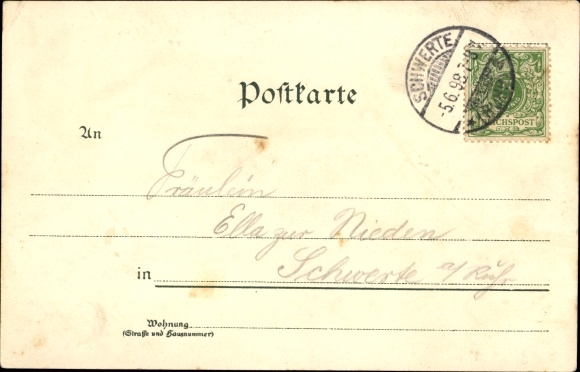 SCHWERTE
-5.6.98.
REICHSPOST
Postkarte
An
Fräulein
Ella zur Nieden
in Schwerte a/Ruhr
Wohnung
(Straße und Hausnummer)